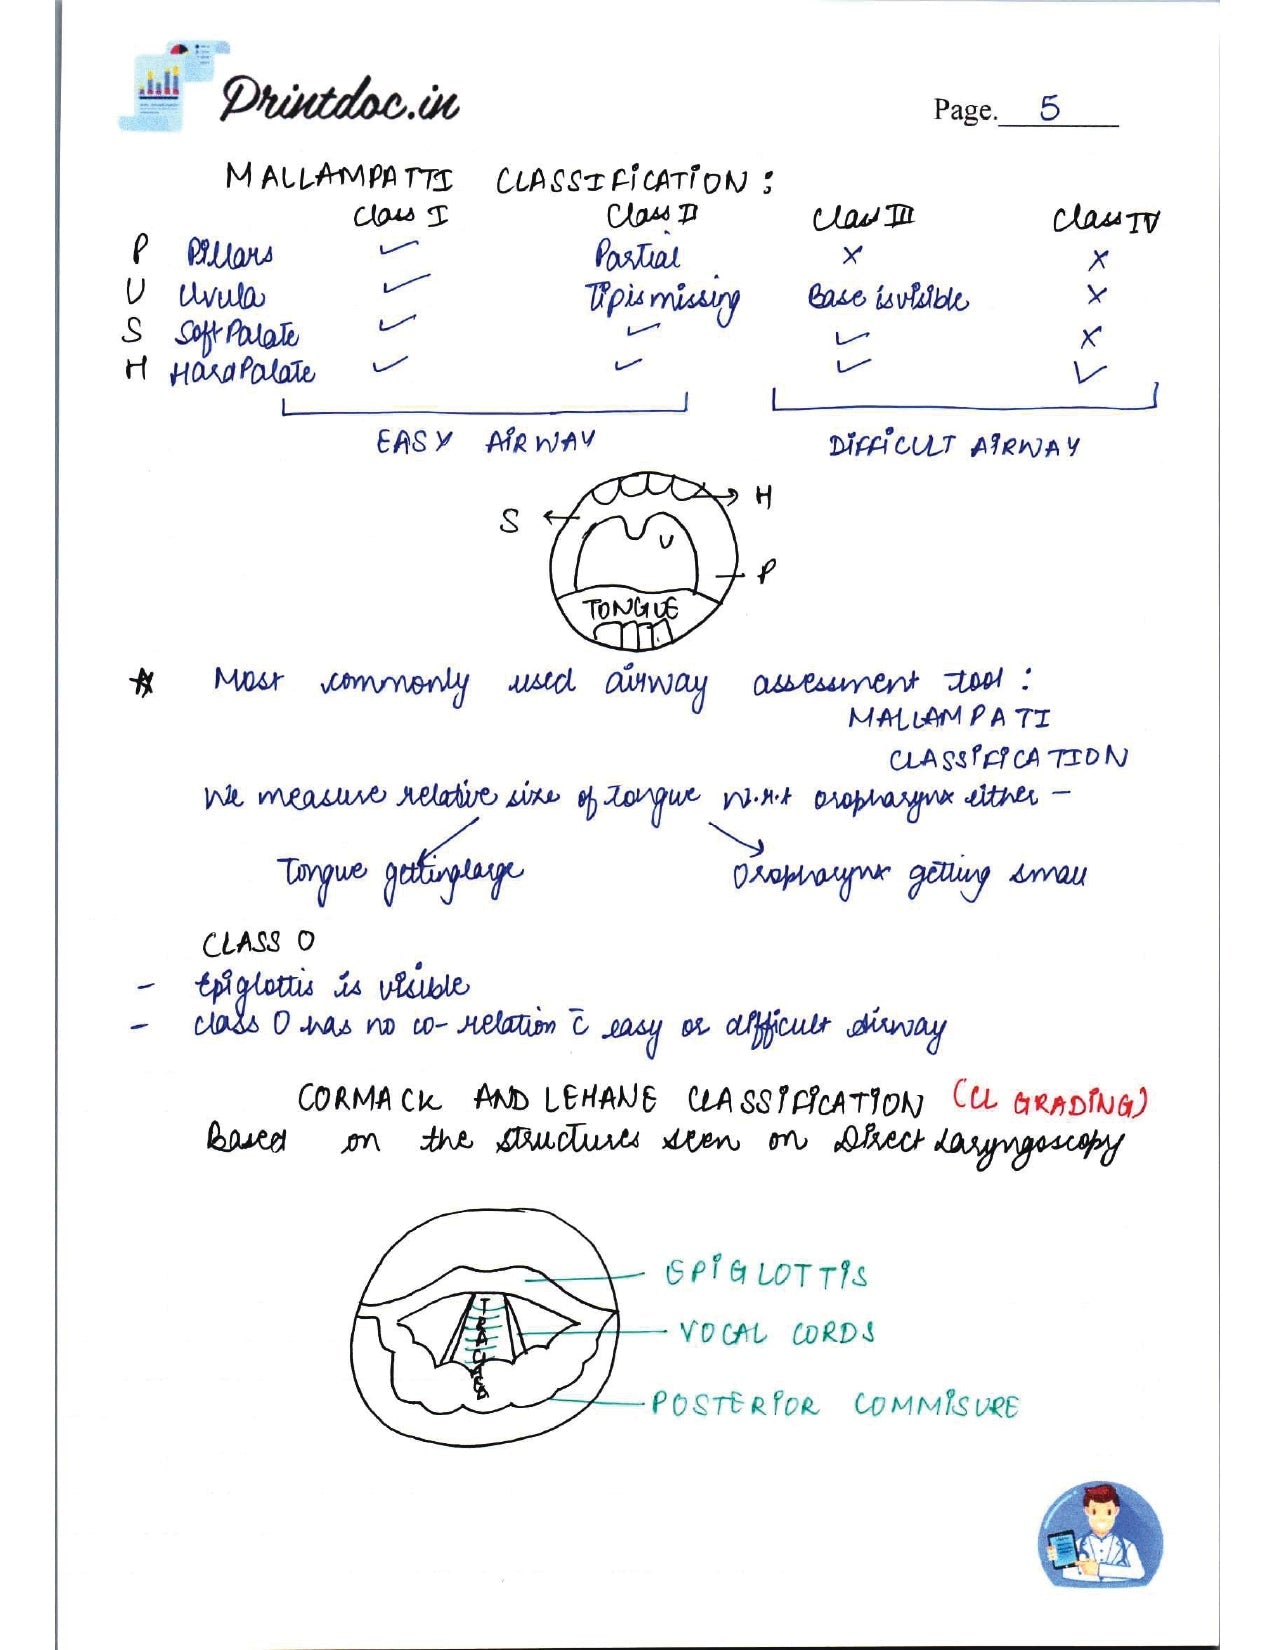 Printdoc.in
Page. 5
MALLAMPATTI CLASSIFICATION :
Class I Class II Class III Class IV
P Pillars ✓ Partial ✗ ✗
U Uvula ✓ Tip is missing Base is visible ✗
S Soft Palate ✓ ✓ ✓ ✗
H Hard Palate ✓ ✓ ✓ ✓
EASY AIRWAY DIFFICULT AIRWAY
H
S
U
P
TONGUE
Most commonly used airway assessment tool :
MALLAMPATI
CLASSIFICATION
We measure relative size of tongue w.r.t oropharynx either –
Tongue getting large Oropharynx getting small
CLASS 0
- Epiglottis is visible
- Class 0 has no co-relation c̄ easy or difficult airway
CORMACK AND LEHANE CLASSIFICATION (CL GRADING)
Based on the structures seen on Direct Laryngoscopy
EPIGLOTTIS
TRACHEA
VOCAL CORDS
POSTERIOR COMMISURE